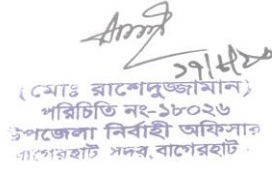 (মোঃ রাশেদুজ্জামান)
পরিচিতি নং-১৮০২৬
উপজেলা নির্বাহী অফিসার
বাগেরহাট সদর, বাগেরহাট